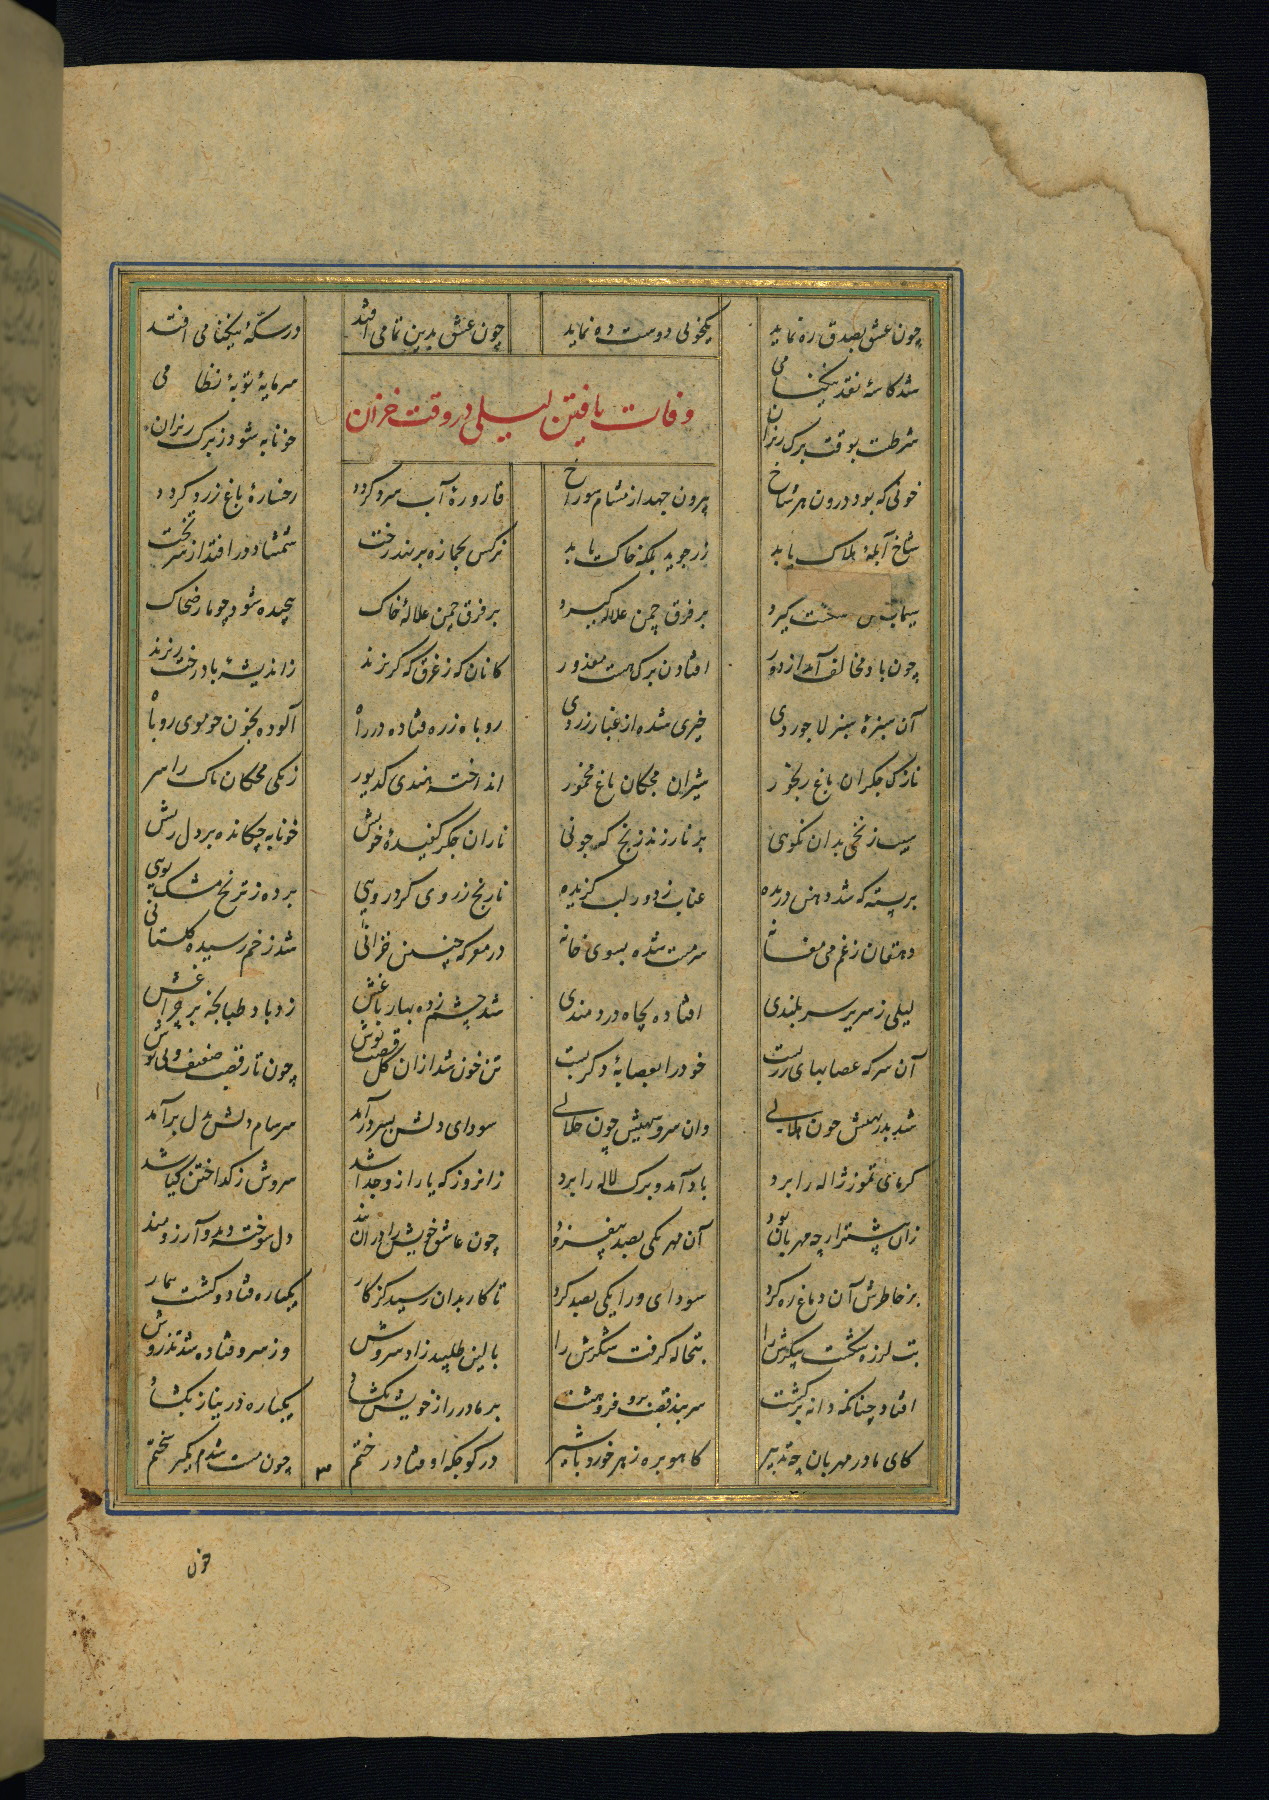 چون عشق بصدق ره نماید یکخوبی دوست ده نماید چون عشق بدین تمامی افتد در سکهٔ نیکنامی افتد
شد کاسهٔ نقد نیکنامی سرمایهٔ توبهٔ نظامی
وفات یافتن لیلی در وقت خزان
شرطست بوقت برک ریزان خونابه شود ز برک ریزان
خونی که بود درون هر شاخ بیرون جهد از مشام سوراخ قارورهٔ آب سرد کردد رخسارهٔ باغ زرد کردد
شاخ آبلهٔ هلاک یابد زر جوید برک خاک یابد نرکس بجمازه بربندد رخت شمشاد در افتد از سر تخت
سیمای سمن شکست کیرد بر فرق چمن کلاله کیرد بر فرق چمن کلالهٔ خاک پیچیده شود چو مار ضحاک
چون باد مخالف آمد از دور افتادن برک هست معذور کانان که ز غرق که کریزند ز اندیشهٔ باد رخت ریزند
آن سبزهٔ سبز لاجوردی خیری شده از غبار زردی روباه زره فتاده در راه آلوده بخون چو موی روباه
نازک جکران باغ رنجور شیرین نمکان باغ مخمور انداخته هندی کدیور زنکی بچکان تاک را سر
سیب زنخی بدان نکوهی بر نار زند زنخ که چونی ناران جکر کفیدهٔ خویش خونابه چکانده بر دل ریش
بر پسته که شد دهن دریده عناب ز دور لب کزیده نارنج ز روی کرد رویی برده ز ترنج مشک بویی
دهقان ز غم می مغانه سرمست شده بسوی خانه در معرکه چنین خزانی شد زخم رسیده کلستانی
لیلی ز سریر سربلندی افتاده بچاه دردمندی شد چشم زده بهار باغش زد باد طپانجه بر چراغش
آن سر که عصابهای زر بست خود را بعصابهٔ دکر بست تن خون شد از ان کل قصب پوش چون تار قصب ضعیف و بی توش
شد بدر مهش چون هلالی وان سرو سهیش چون خلالی سودای دلش بسر درآمد سرسام دلش بدل برآمد
کرمای تموز ژاله را برد باد آمد و برک لاله را برد زانروز که یار ازو جدا شد سروش ز کداختن کیا شد
زان پیشتر ارچه مهربان بود آن مهر یکی بصد بیفزود چون عاشق خویش را دران بند دل سوخته دید و آرزومند
بر خاطرش آن دماغ ره کرد سودای ورا یکی بصد کرد تا کار بدان رسید کز کار یکباره فتاد و کشت بیمار
تب لرزه شکست پیکرش را تبخاله کرفت شکرش را بالین طلبید زاد سروش وز سرو فتاده شد تذروش
افتاد چنانکه دانه بر کشت سربند قصب برو فروهشت بر مادر راز خویش بکشاد یکباره در نیاز بکشاد
کای مادر مهربان چه تدبیر کاهو بره زهر خورد با شیر در کوچکه اوفتاد رختم چون سست شدم مکیر سختم
چون